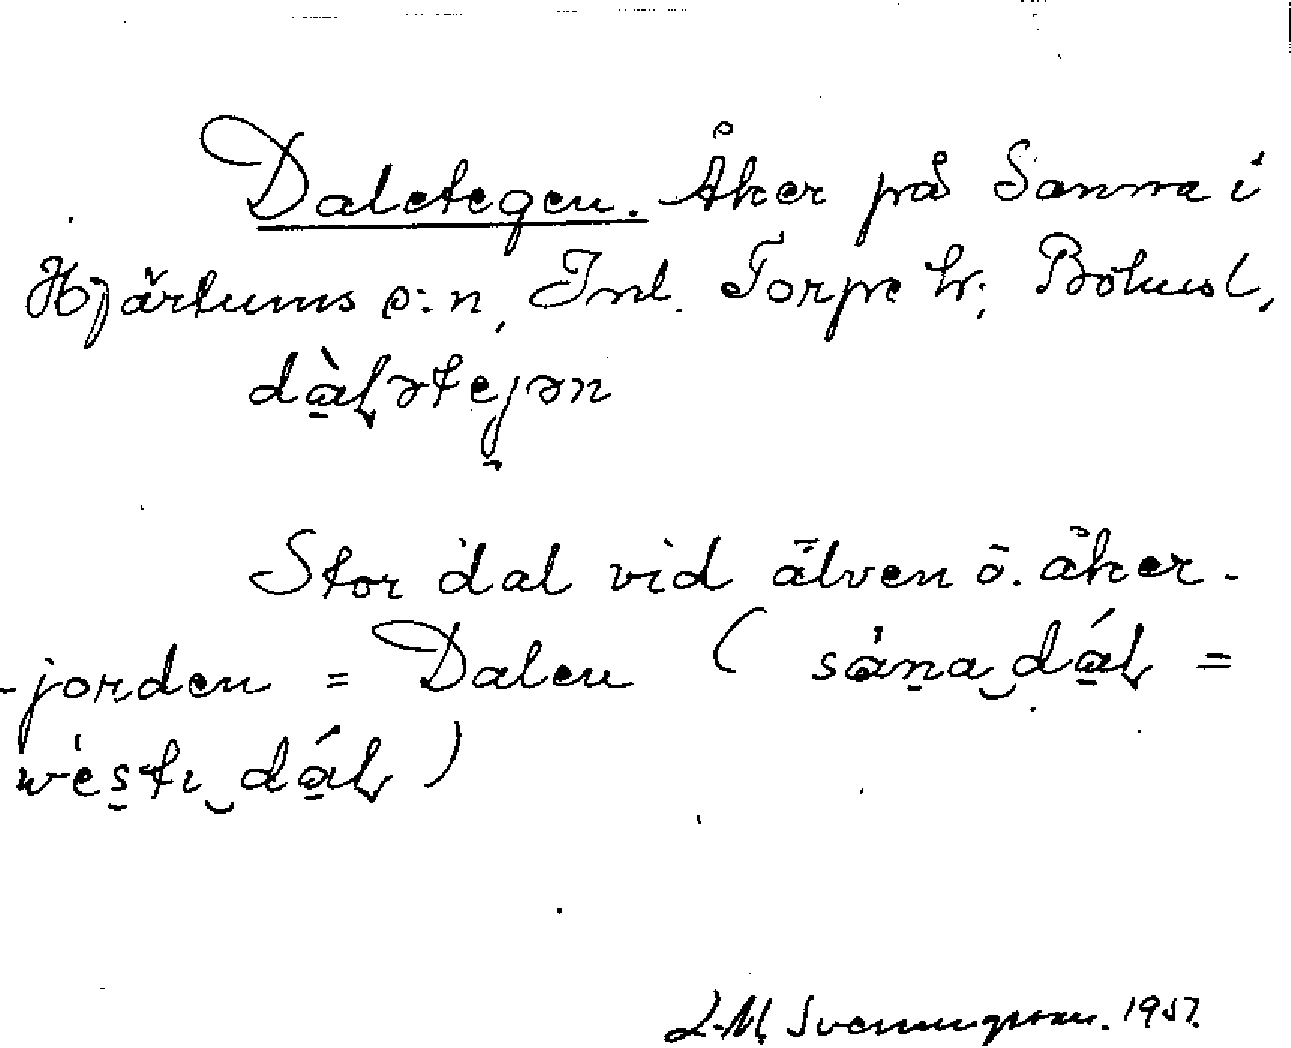 Daletegen. Åker på Sanna i
Hjärtums s:n, Inl. Torpe hr; Bohusl,
dàḷətejən
Stor dal vid älven ö. åker-
-jorden = Dalen ( sána‿dáḷ =
wésti‿dáḷ )
L.M. Svenungsson. 1957.